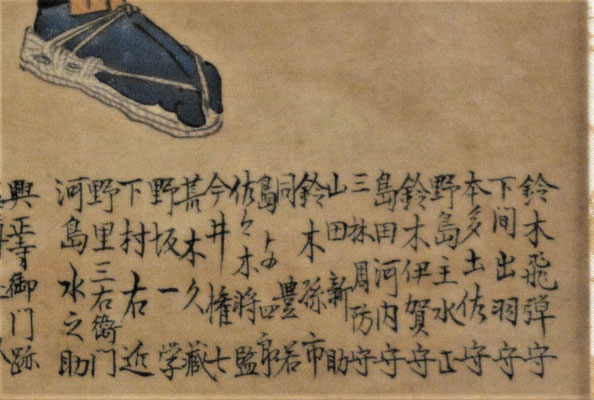 鈴木飛弾守
下間出羽守
本多土佐守
野島主水正
鈴木伊賀守
島田河内守
三林周防守
山田新助
鈴木孫市
同豊若
島与四郎
佐々木将監
今井権七
荒木久藏
野坂一学
下村右近
野里三右衛門
河島水之助
興正寺御門跡